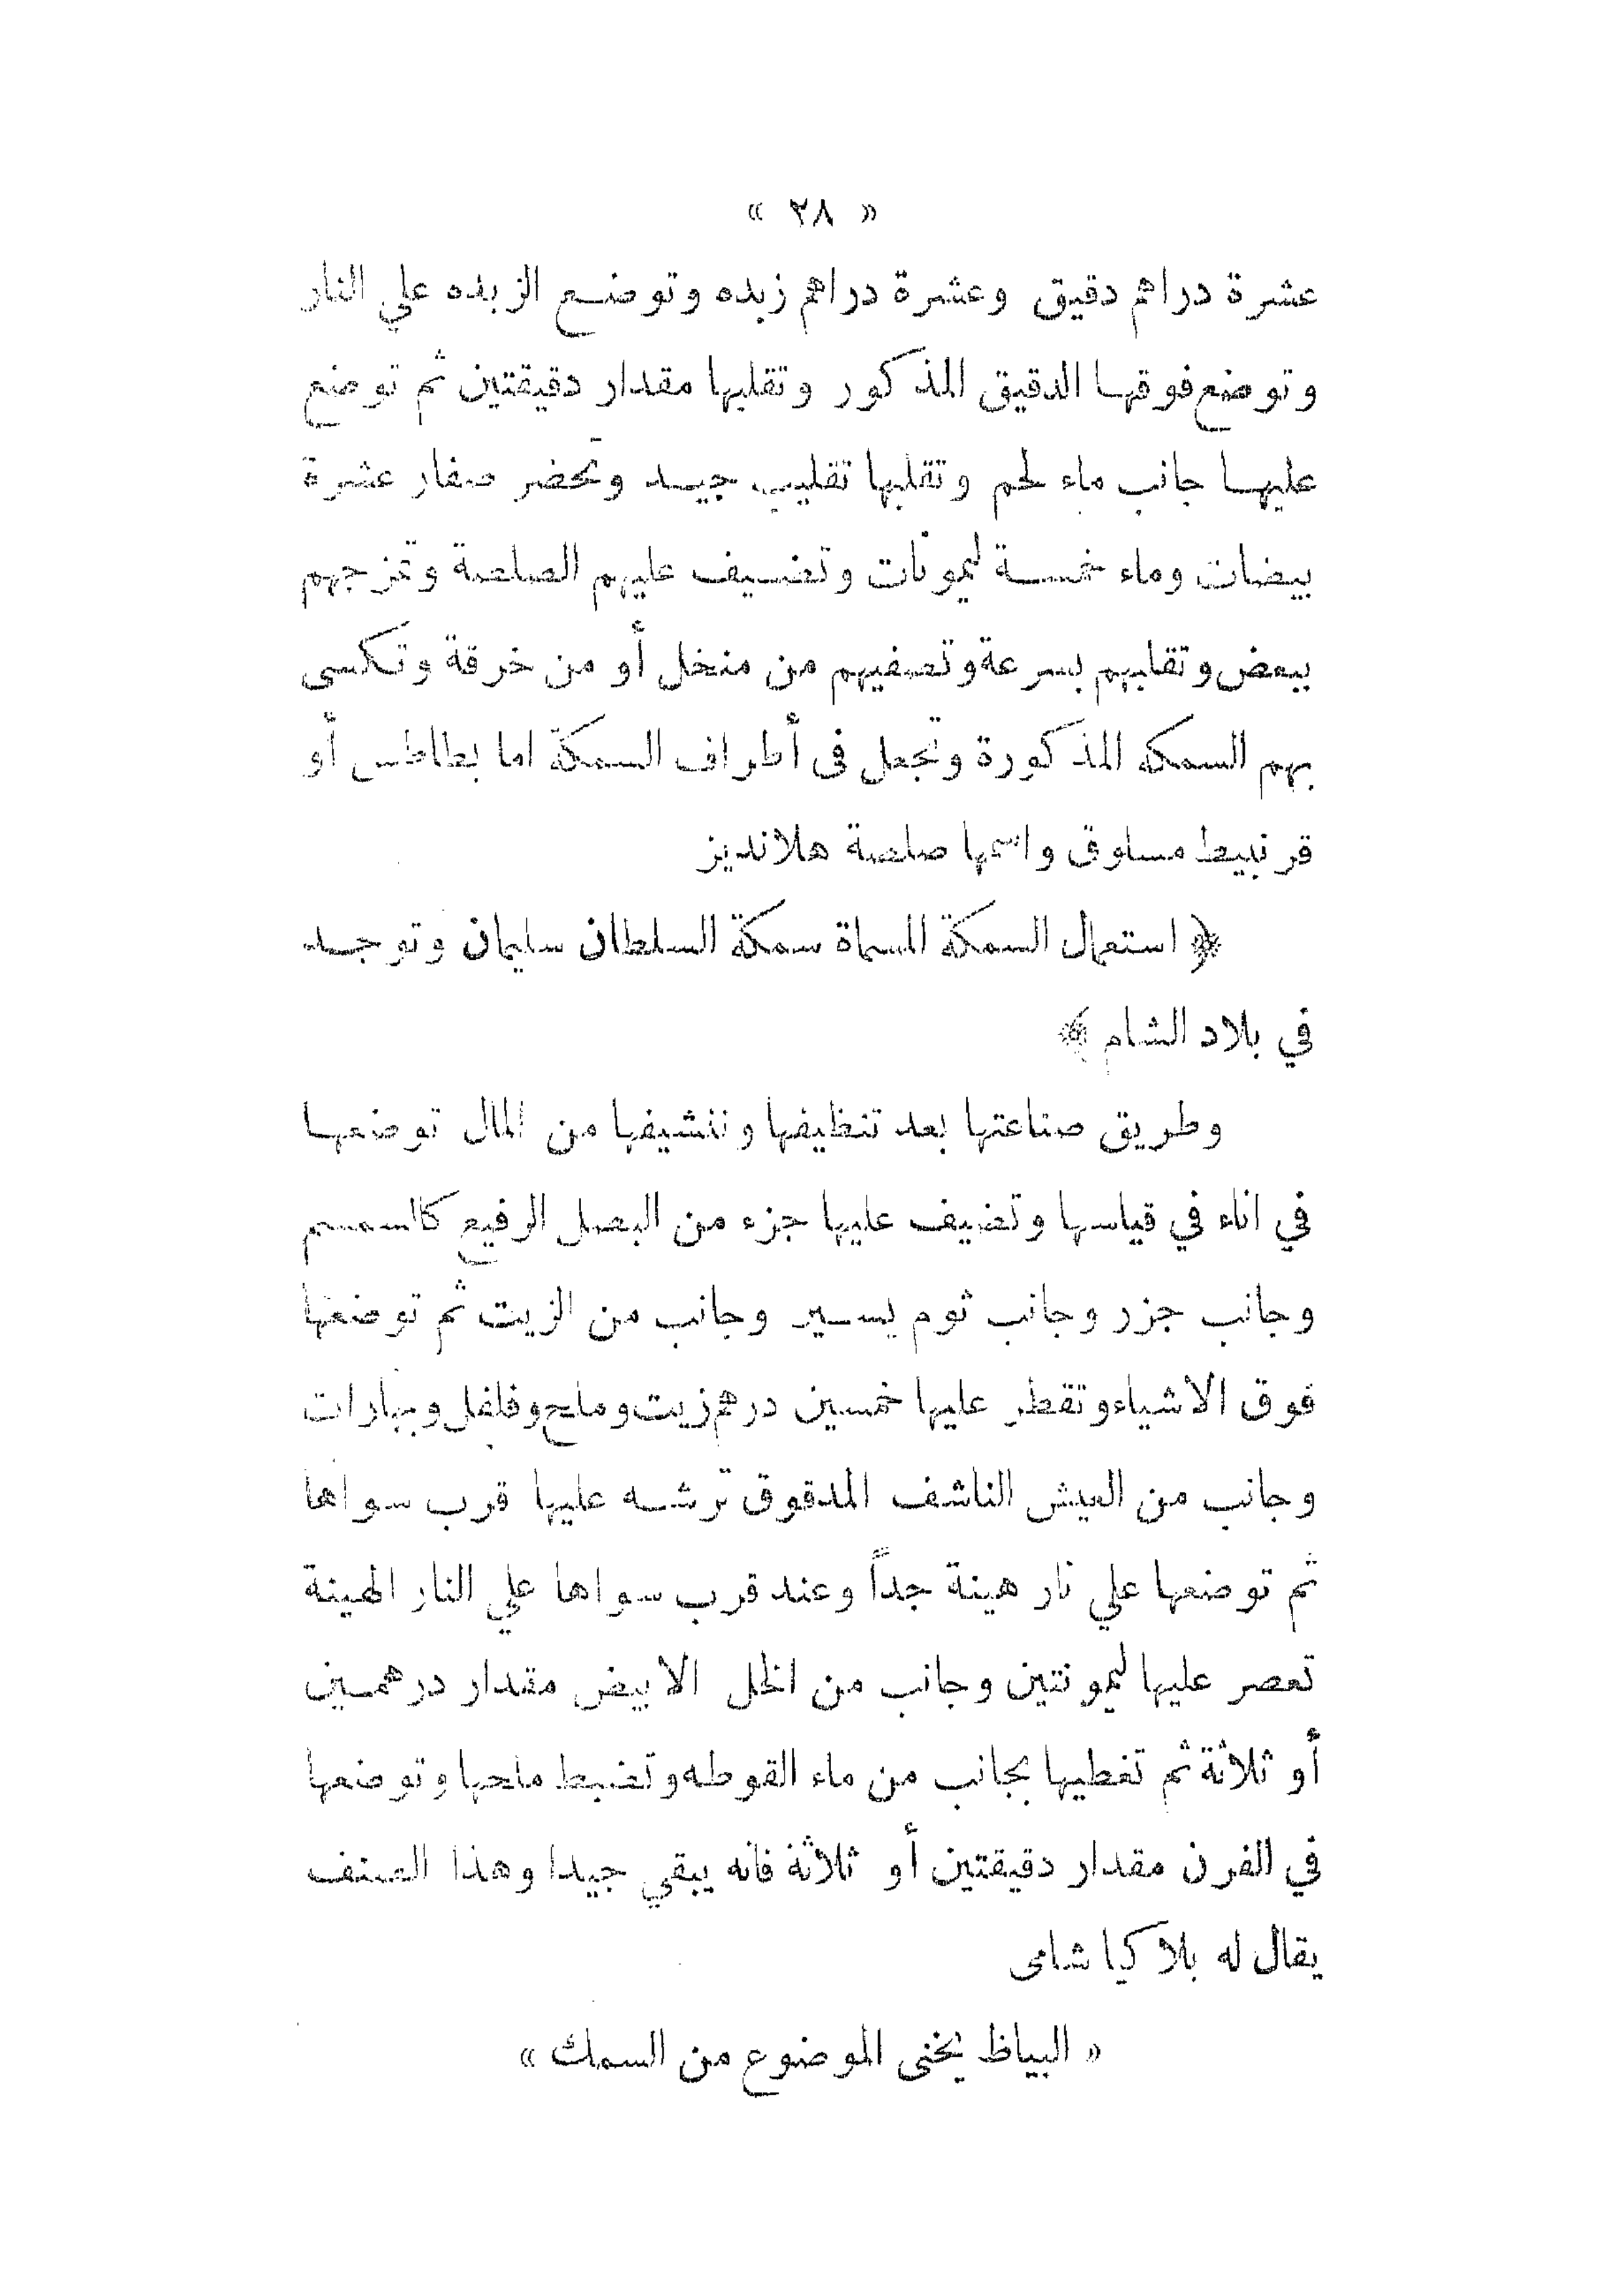 « ٢٨ »
عشرة دراهم دقيق وعشرة دراهم زبده وتوضع الزبده علي النار
وتوضع فوقها الدقيق المذكور وتقلبها مقدار دقيقتين ثم توضع
عليها جانب ماء لحم وتقلبها تقليب جيد وتحضر صفار عشرة
بيضات وماء خمسة ليمونات وتضيف عليهم الصلصة وتمزجهم
ببعض وتقلبهم بسرعة وتصفيهم من منخل أو من خرقة وتكسى
بهم السمكه المذكورة وتجعل فى أطراف السمكة اما بطاطس أو
قرنبيط مساوق واسمها صلصة هلانديز
﴿ استعمال السمكة المسماة سمكة السلطان سليمان وتوجد
في بلاد الشام ﴾
وطريق صناعتها بعد تنظيفها وننشيفها من المال توضعها
في اناء في قياسها وتضيف عليها جزء من البصل الرفيع كالسمسم
وجانب جزر وجانب ثوم يسير وجانب من الزيت ثم توضعها
فوق الاشياء وتقطر عليها خمسين درهم زيت وملح وفلفل وبهارات
وجانب من العيش الناشف المدقوق ترشه عليها قرب سواها
ثم توضعها علي نار هينة جداً وعند قرب سواها علي النار الهينة
تعصر عليها ليمونتين وجانب من الخل الابيض مقدار درهمين
أو ثلاثة ثم تغطيها بجانب من ماء القوطه وتضبط ملحها وتوضعها
في الفرن مقدار دقيقتين أو ثلاثة فانه يبقي جيدا وهذا الصنف
يقال له بلا كيا شامى
« البياظ يخنى الموضوع من السمك »